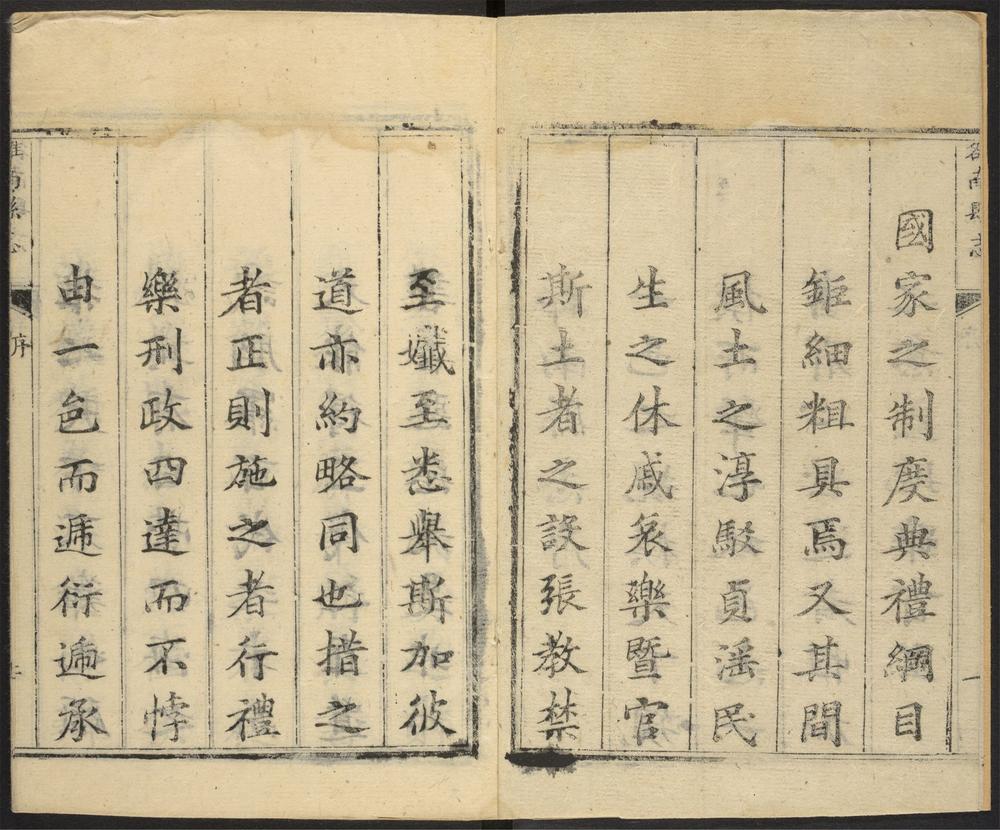 國家之制度典禮綱目
鉅細粗具焉又其間
風土之淳駁貞滛民
生之休戚哀樂暨官
斯土者之設張教禁
至孅至悉舉斯加彼
道亦約略同也措之
者正則施之者行禮
樂刑政四達而不悖
由一邑而遞衍遞承
序